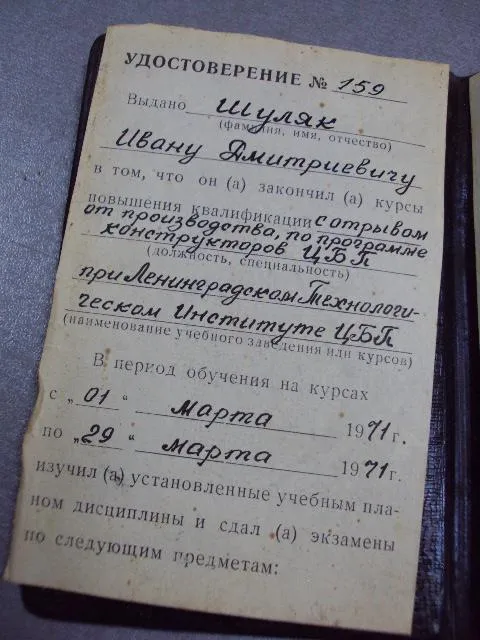 УДОСТОВЕРЕНИЕ № 159
Выдано Шуляк
(фамилия, имя, отчество)
Ивану Дмитриевичу
в том, что он (а) закончил (а) курсы
повышения квалификации с отрывом
от производства, по программе
конструкторов ЦБП
(должность, специальность)
при Ленинградском Технологи-
ческом Институте ЦБП
(наименование учебного заведения или курсов)
В период обучения на курсах
с „01“ марта 1971 г.
по „29“ марта 1971 г.
изучил (а) установленные учебным пла-
ном дисциплины и сдал (а) экзамены
по следующим предметам: